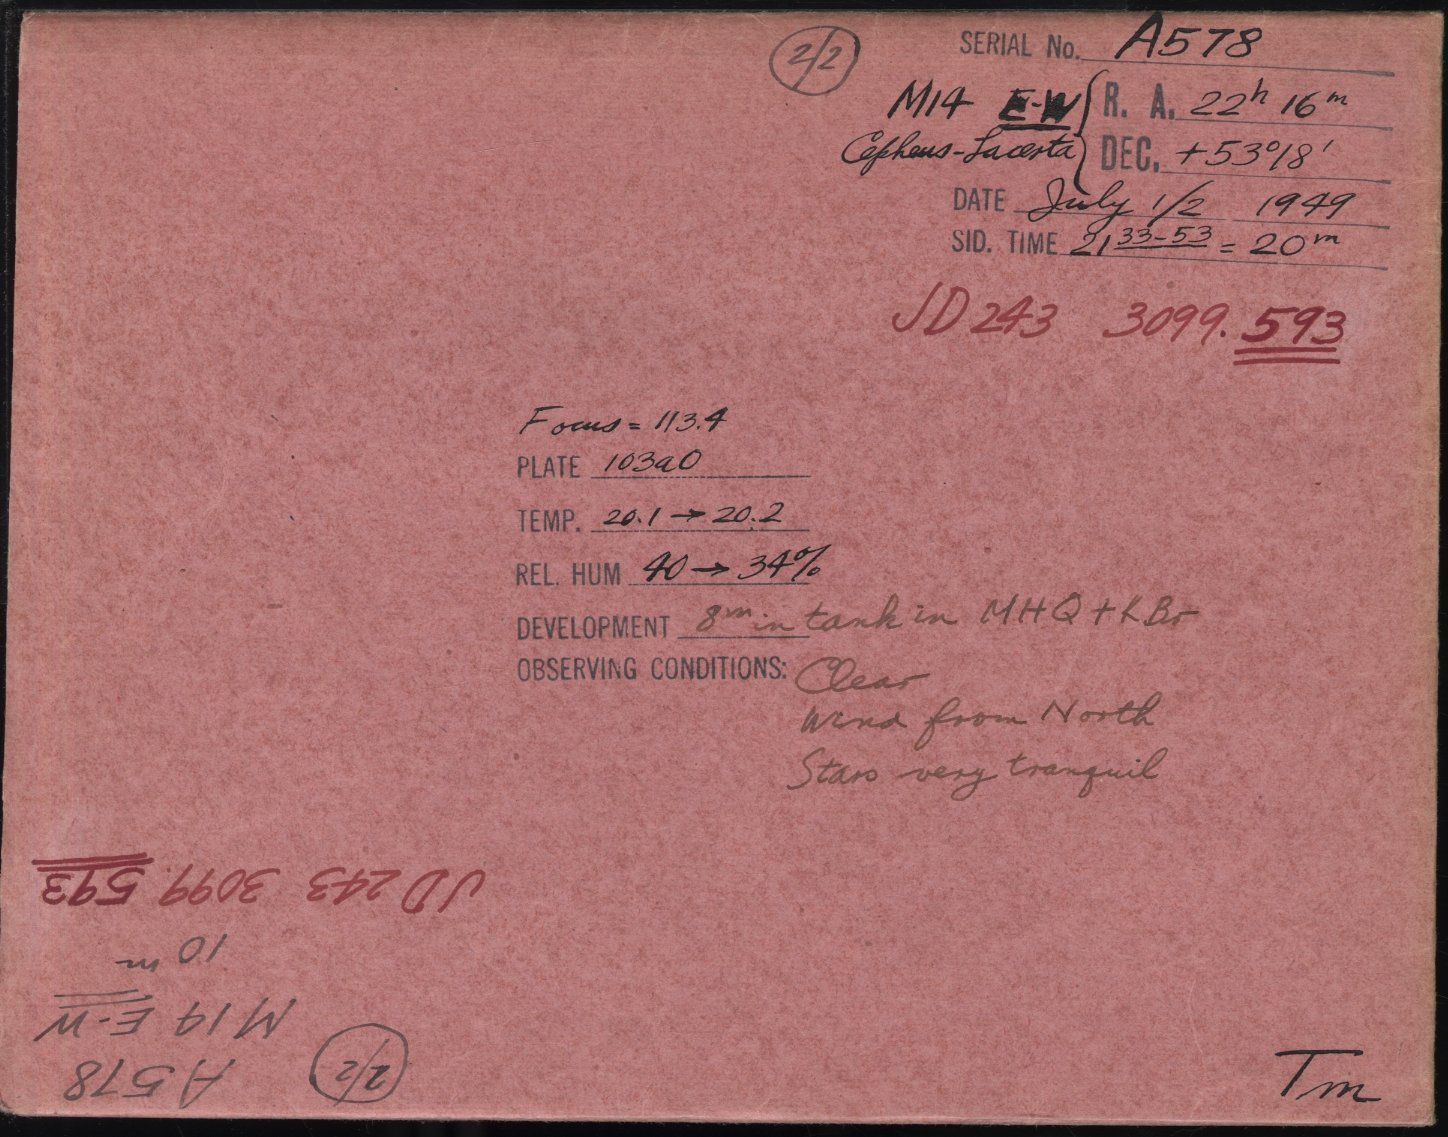 2/2
SERIAL No. A578
M14 E-W R. A. 22h 16m
Cepheus-Lacerta DEC. +53°18'
DATE July 1/2 1949
SID. TIME 21 33-53 = 20m
JD 243 3099.593
Focus = 113.4
PLATE 103aO
TEMP. 20.1 → 20.2
REL. HUM 40 → 34%
DEVELOPMENT 8m in tank in MHQ + KBr
OBSERVING CONDITIONS: Clear
Wind from North
Stars very tranquil
Tm
2/2
A578
M14 E-W
10m
JD 243 3099.593